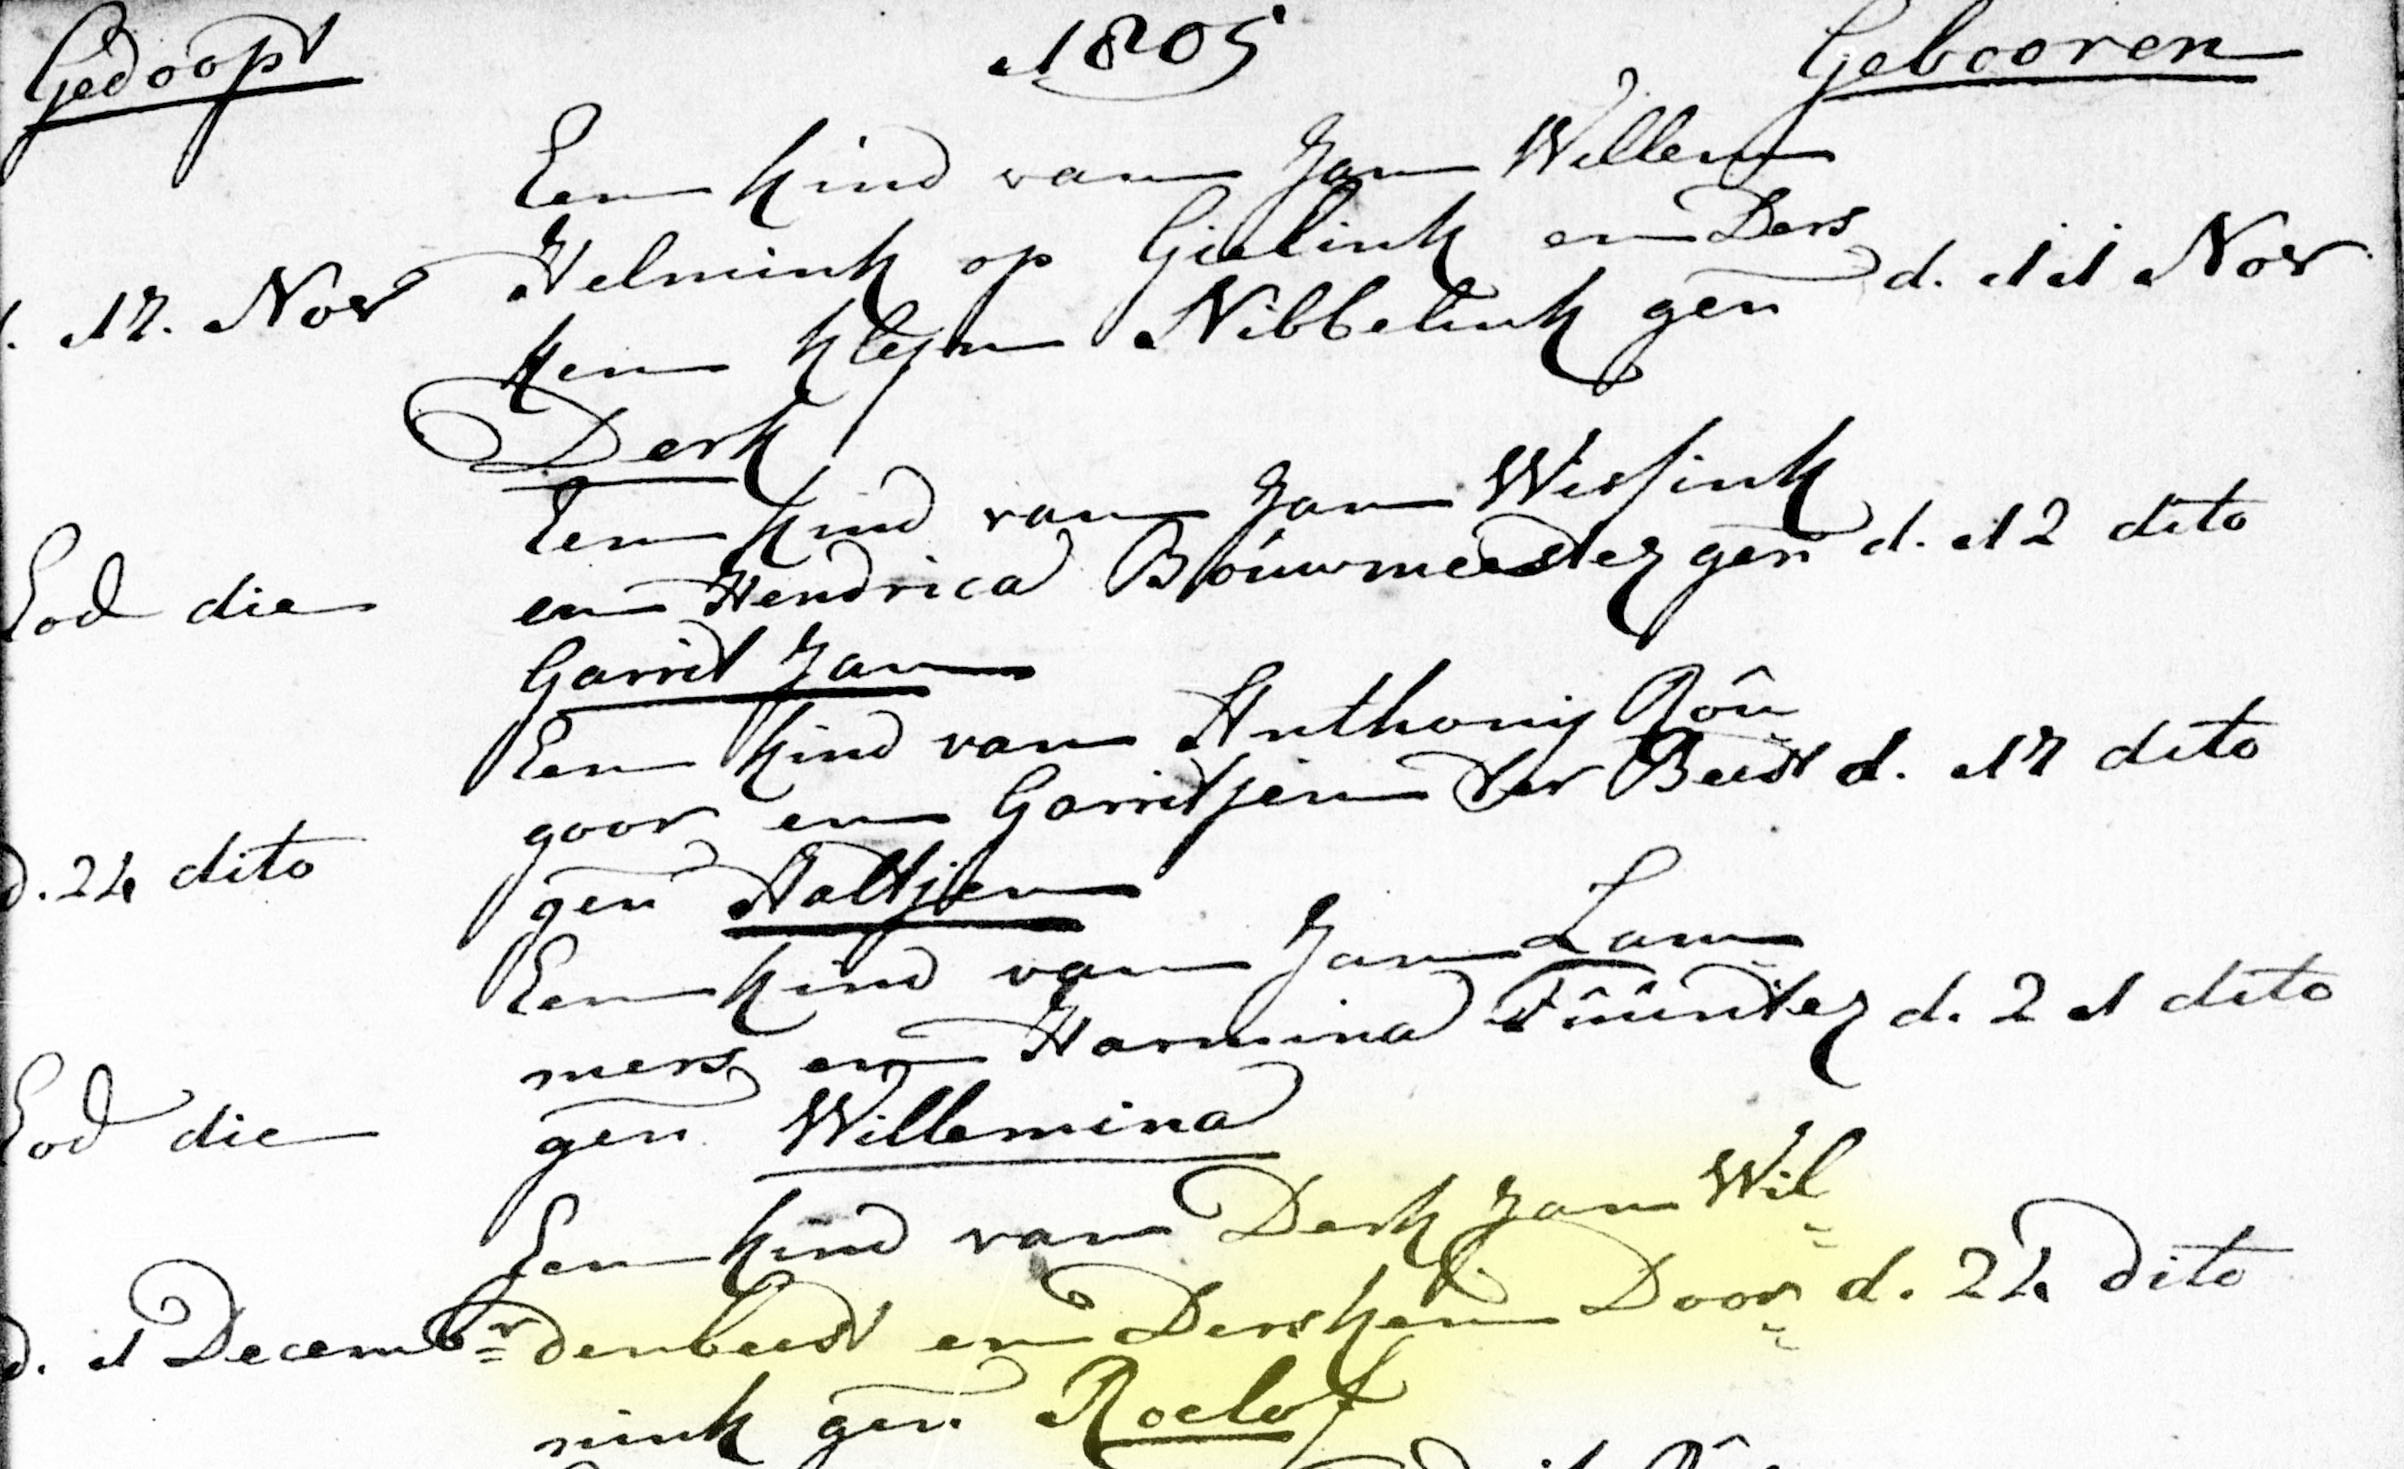 Gedoopt 1805 Gebooren
Een kind van Jan Willem
d. 17. Nov Helmink op Gielink en Ders d. 11 Nov
ken kleyn Nibbelink gen
Derk
Een kind van Jan Wissink
Eod die en Hendrica Bouwmeester gen d. 12 dito
Garrit Jan
Een kind van Anthonij Roû
goor en Garritjen ter Beest d. 17 dito
d. 24 dito gen Aaltjen
Een kind van Jan Lam
mers en Harmina Tûûnter d. 21 dito
Eod die gen Willemina
Een kind van Derk Jan Wil
d. 1 Decembr denbeest en Dersken Door d. 24 dito
nink gen Roelof